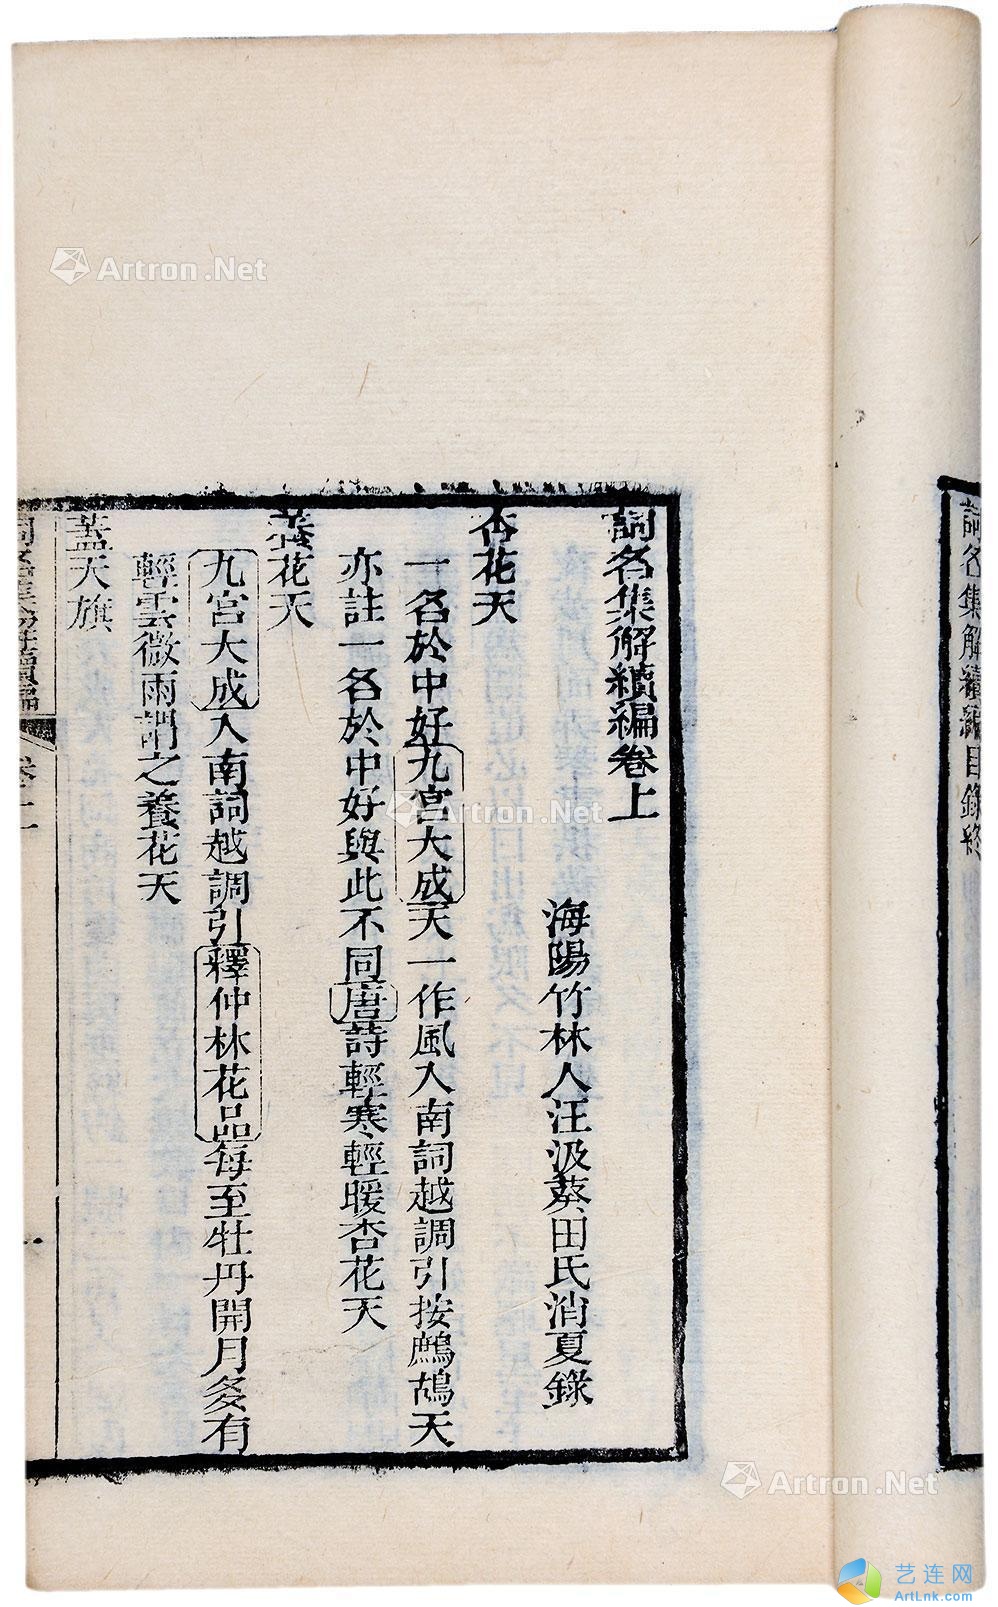 詞名集解續編目錄終
詞名集解續編卷上
海陽竹林人汪汲葵田氏消夏錄
杏花天
一名於中好九宮大成天一作風入南詞越調引按鷓鴣天
亦註一名於中好與此不同唐詩輕寒輕暖杏花天
養花天
九宮大成入南詞越調引釋仲林花品每至牡丹開月多有
輕雲微雨謂之養花天
蓋天旗
詞名集解續編 卷上 一
Artron.Net
Artron.Net
Artron.Net
艺连网
ArtLnk.com